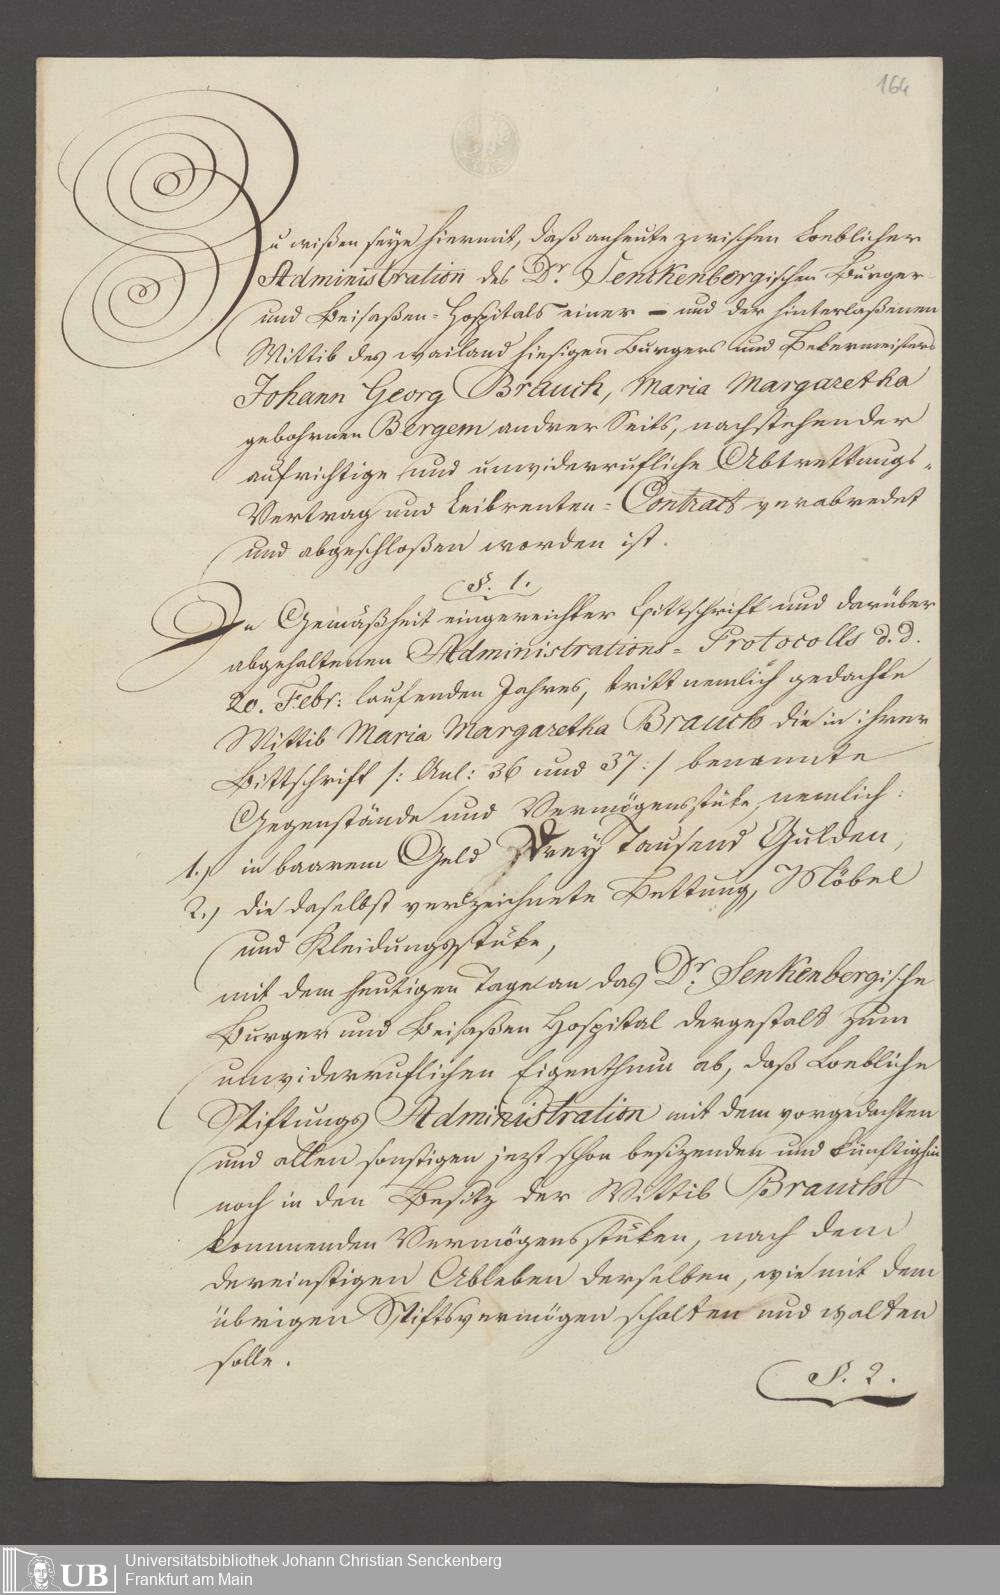 164
Zu wißen seye hiermit, daß anheute zwischen Loeblicher
Administration des Dr. Senckenbergischen Burger-
und Beisaßen-Hospitals einer – und der hinterlaßenen
Wittib des wailand hiesigen Burgers und Bekermeisters
Johann Georg Brauch, Maria Margaretha
gebohrnen Bergem andrer Seits, nachstehender
aufrichtige und unwiderrufliche Abtrettungs-
Vertrag und Leibrenten-Contract verabredet
und abgeschloßen worden ist.
§. 1.
In Gemäßheit eingereichter Bittschrift und darüber
abgehaltenen Administrations-Protocolls d. d.
20. Febr: laufenden Jahres, tritt nemlich gedachte
Wittib Maria Margaretha Brauch die in ihrer
Bittschrift /: Anl: 36 und 37:/ benannte
Gegenstände und Vermögensstüke, nemlich:
1.) in baarem Geld Drey Tausend Gulden,
2.) die daselbst verzeichnete Bettung, Möbel
und Kleidungsstüke,
mit dem heutigen Tage an das Dr. Senkenbergische
Burger und Beisaßen Hospital dergestalt zum
unwiderruflichen Eigenthum ab, daß Loebliche
Stiftungs Administration mit dem vorgedachten
und allen sonstigen jezt schon besizenden und künftighin
noch in den Besitz der Wittib Brauch
kommenden Vermögensstüken, nach dem
dereinstigen Ableben derselben, wie mit dem
übrigen Stiftsvermögen schalten und walten
solle.
§. 2.
UB
Universitätsbibliothek Johann Christian Senckenberg
Frankfurt am Main